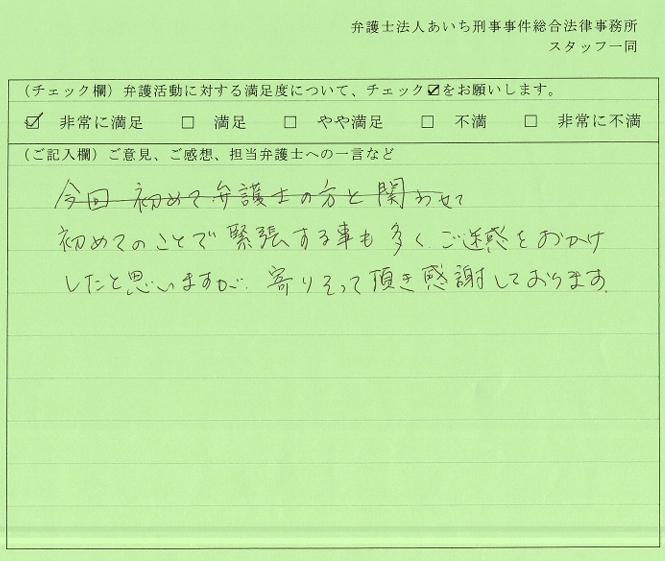 弁護士法人あいち刑事事件総合法律事務所
スタッフ一同
（チェック欄）弁護活動に対する満足度について、チェック☑をお願いします。
☑ 非常に満足 □ 満足 □ やや満足 □ 不満 □ 非常に不満
（ご記入欄）ご意見、ご感想、担当弁護士への一言など
今回 初めて弁護士の方と関わせて
初めてのことで緊張する事も多く、ご迷惑をおかけ
したと思いますが、寄りそって頂き感謝しております。